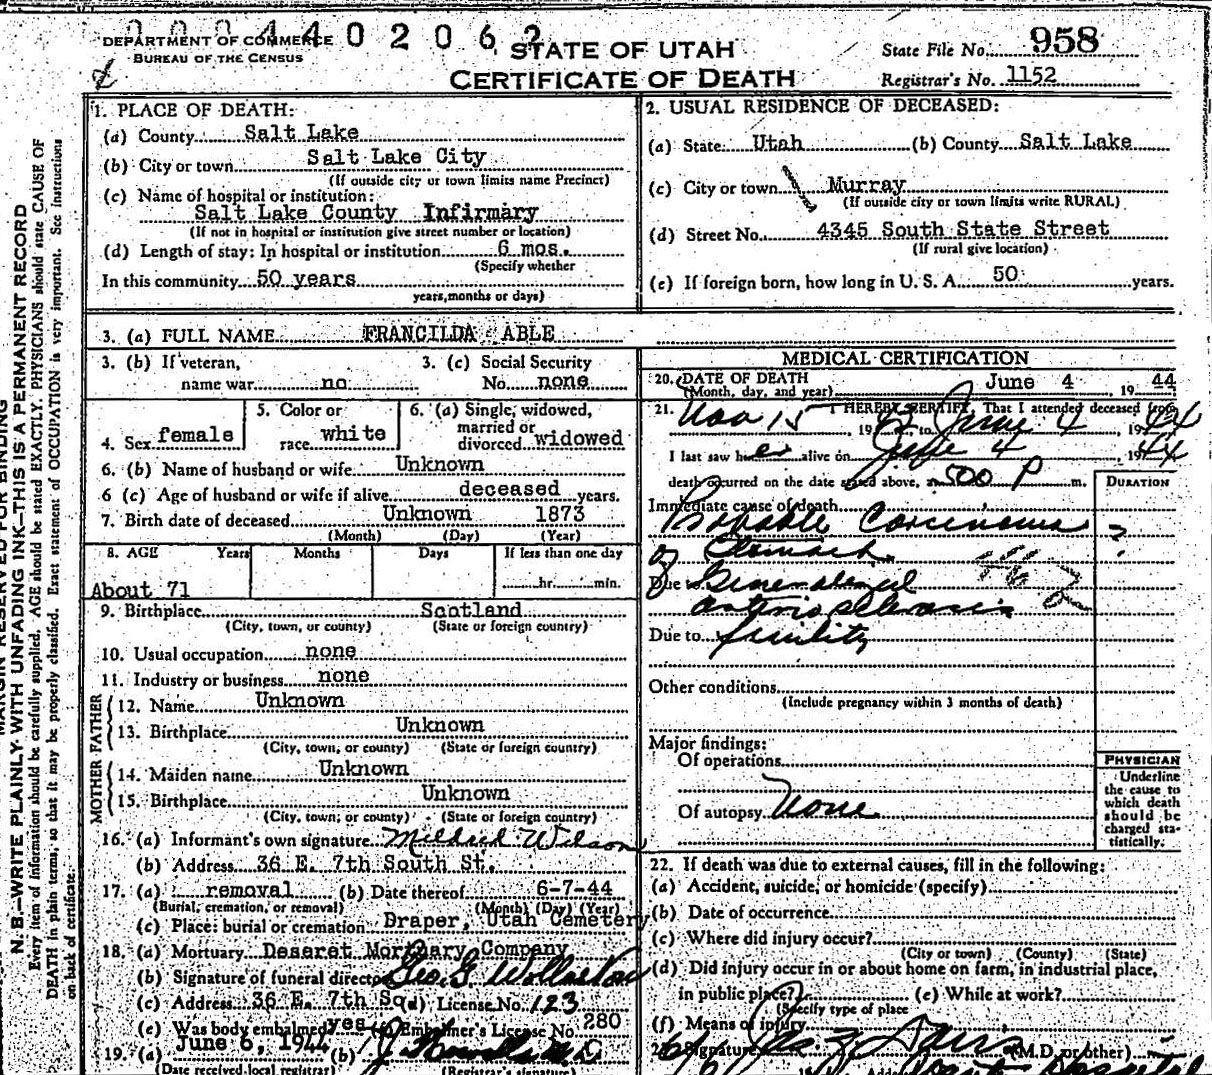 0004402062
DEPARTMENT OF COMMERCE
BUREAU OF THE CENSUS
STATE OF UTAH
CERTIFICATE OF DEATH
State File No. 958
Registrar's No. 1152
1. PLACE OF DEATH:
(a) County Salt Lake
(b) City or town Salt Lake City
(If outside city or town limits name Precinct)
(c) Name of hospital or institution:
Salt Lake County Infirmary
(If not in hospital or institution give street number or location)
(d) Length of stay: In hospital or institution 6 mos.
(Specify whether
In this community 50 years
years, months or days)
2. USUAL RESIDENCE OF DECEASED:
(a) State Utah (b) County Salt Lake
(c) City or town Murray
(If outside city or town limits write RURAL)
(d) Street No. 4345 South State Street
(If rural give location)
(e) If foreign born, how long in U. S. A. 50 years.
3. (a) FULL NAME FRANCILDA ABLE
3. (b) If veteran,
name war no
3. (c) Social Security
No. none
4. Sex female
5. Color or
race white
6. (a) Single, widowed,
married or
divorced widowed
6. (b) Name of husband or wife Unknown
6 (c) Age of husband or wife if alive deceased years.
7. Birth date of deceased Unknown 1873
(Month) (Day) (Year)
8. AGE Years Months Days If less than one day
About 71 hr. min.
9. Birthplace Scotland
(City, town, or county) (State or foreign country)
10. Usual occupation none
11. Industry or business none
FATHER
12. Name Unknown
13. Birthplace Unknown
(City, town, or county) (State or foreign country)
MOTHER
14. Maiden name Unknown
15. Birthplace Unknown
(City, town, or county) (State or foreign country)
16. (a) Informant's own signature Mildred Wilson
(b) Address 36 E. 7th South St.
17. (a) removal (b) Date thereof 6-7-44
(Burial, cremation, or removal) (Month) (Day) (Year)
(c) Place: burial or cremation Draper, Utah Cemetery
18. (a) Mortuary Deseret Mortuary Company
(b) Signature of funeral director Geo. G.
(c) Address 36 E. 7th So. (d) License No. 123
(e) Was body embalmed yes (f) Embalmer's License No. 280
19. (a) June 6, 1944 (b)
(Date received local registrar) (Registrar's signature)
MEDICAL CERTIFICATION
20. DATE OF DEATH June 4 19 44
(Month, day, and year)
21. I HEREBY CERTIFY, That I attended deceased from
Nov 15 19 to June 4, 1944
I last saw her alive on June 4, 1944
death occurred on the date stated above, at 500 P m.
DURATION
Immediate cause of death
Probable Carcinoma ?
of Stomach
Due to Generalized
arteriosclerosis
462
Due to senility
Other conditions
(Include pregnancy within 3 months of death)
Major findings:
Of operations
Of autopsy None
PHYSICIAN
Underline
the cause to
which death
should be
charged sta-
tistically.
22. If death was due to external causes, fill in the following:
(a) Accident, suicide, or homicide (specify)
(b) Date of occurrence
(c) Where did injury occur?
(City or town) (County) (State)
(d) Did injury occur in or about home on farm, in industrial place,
in public place? (e) While at work?
(Specify type of place
(f) Means of injury
Signature (M.D. or other)
Hospital
MARGIN RESERVED FOR BINDING
N. B.—WRITE PLAINLY WITH UNFADING INK—THIS IS A PERMANENT RECORD
Every item of information should be carefully supplied. AGE should be stated EXACTLY. PHYSICIANS should state CAUSE OF
DEATH in plain terms, so that it may be properly classified. Exact statement of OCCUPATION is very important. See instructions
on back of certificate.